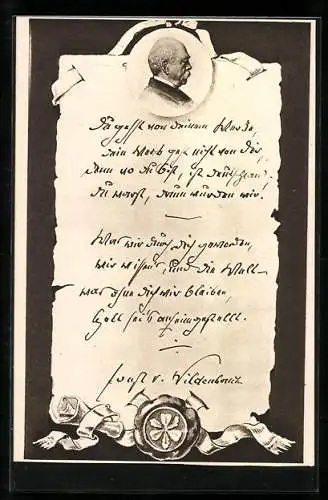 Du gehst von deinem Werke,
dein Werk geht nicht von dir,
denn wo du bist, ist Deutschland,
du warst, drum wurden wir!
Was wir durch dich geworden,
wir wissen's, und die Welt –
was ohne dich wir bleiben,
Gott sei's anheimgestellt.
Ernst v. Wildenbruch